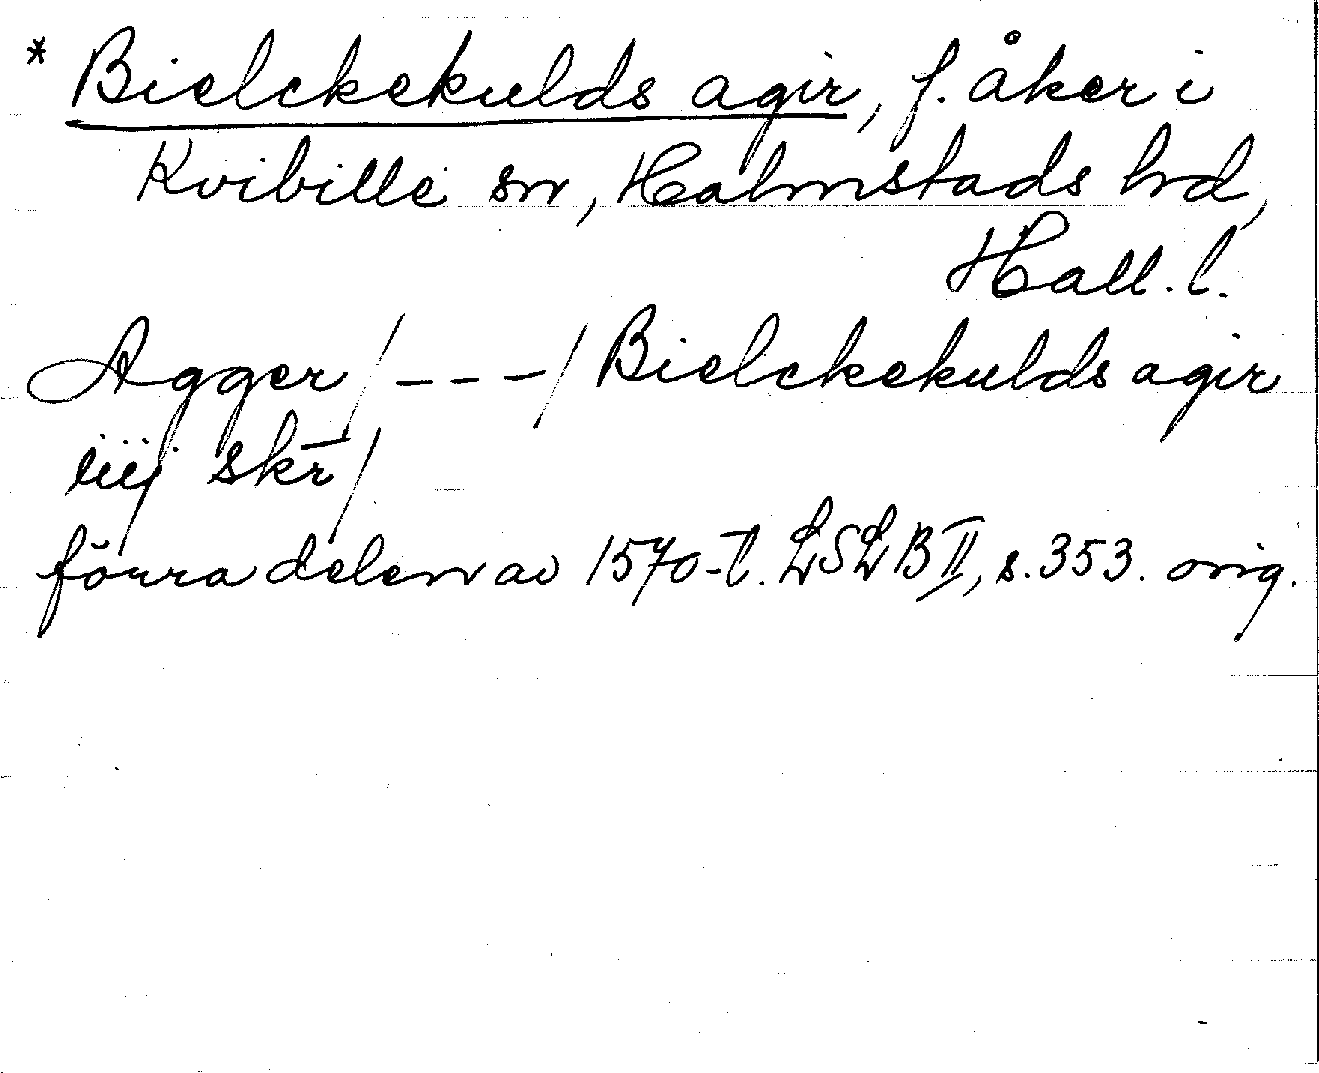 * Bielckekulds agir, f. åker i
Kvibille sn, Halmstads hd,
Hall. l.
Agger / --- / Bielckekulds agir
iiij skr̄ /
förra delen av 1570-t. LSLB II, s. 353. orig.